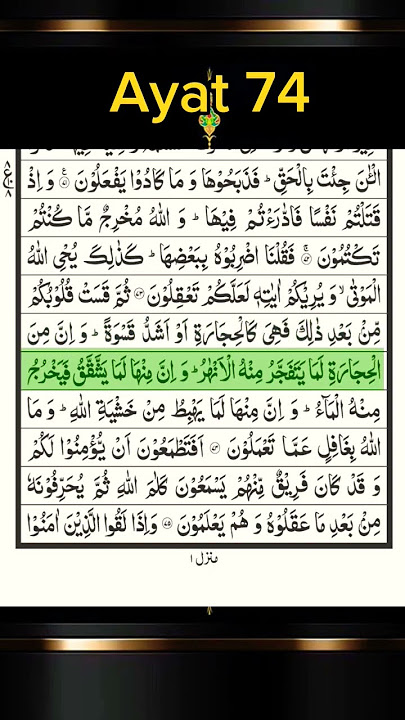 Ayat 74
الْـٰٔنَ جِئْتَ بِالْحَقِّ ؕ فَذَبَحُوْهَا وَ مَا كَادُوْا يَفْعَلُوْنَ ۞ وَ اِذْ
قَتَلْتُمْ نَفْسًا فَادّٰرَءْتُمْ فِيْهَا ؕ وَ اللّٰهُ مُخْرِجٌ مَّا كُنْتُمْ
تَكْتُمُوْنَ ۞ فَقُلْنَا اضْرِبُوْهُ بِبَعْضِهَا ؕ كَذٰلِكَ يُحْیِ اللّٰهُ
الْمَوْتٰى ۙ وَ يُرِيْكُمْ اٰيٰتِهٖ لَعَلَّكُمْ تَعْقِلُوْنَ ۞ ثُمَّ قَسَتْ قُلُوْبُكُمْ
مِّنْۢ بَعْدِ ذٰلِكَ فَهِىَ كَالْحِجَارَةِ اَوْ اَشَدُّ قَسْوَةً ؕ وَ اِنَّ مِنَ
الْحِجَارَةِ لَمَا يَتَفَجَّرُ مِنْهُ الْاَنْهٰرُ ؕ وَ اِنَّ مِنْهَا لَمَا يَشَّقَّقُ فَيَخْرُجُ
مِنْهُ الْمَآءُ ؕ وَ اِنَّ مِنْهَا لَمَا يَهْبِطُ مِنْ خَشْيَةِ اللّٰهِ ؕ وَ مَا
اللّٰهُ بِغَافِلٍ عَمَّا تَعْمَلُوْنَ ۞ اَفَتَطْمَعُوْنَ اَنْ يُّؤْمِنُوْا لَكُمْ
وَ قَدْ كَانَ فَرِيْقٌ مِّنْهُمْ يَسْمَعُوْنَ كَلٰمَ اللّٰهِ ثُمَّ يُحَرِّفُوْنَهٗ
مِنْۢ بَعْدِ مَا عَقَلُوْهُ وَ هُمْ يَعْلَمُوْنَ ۞ وَاِذَا لَقُوا الَّذِيْنَ اٰمَنُوْا
منزل ١